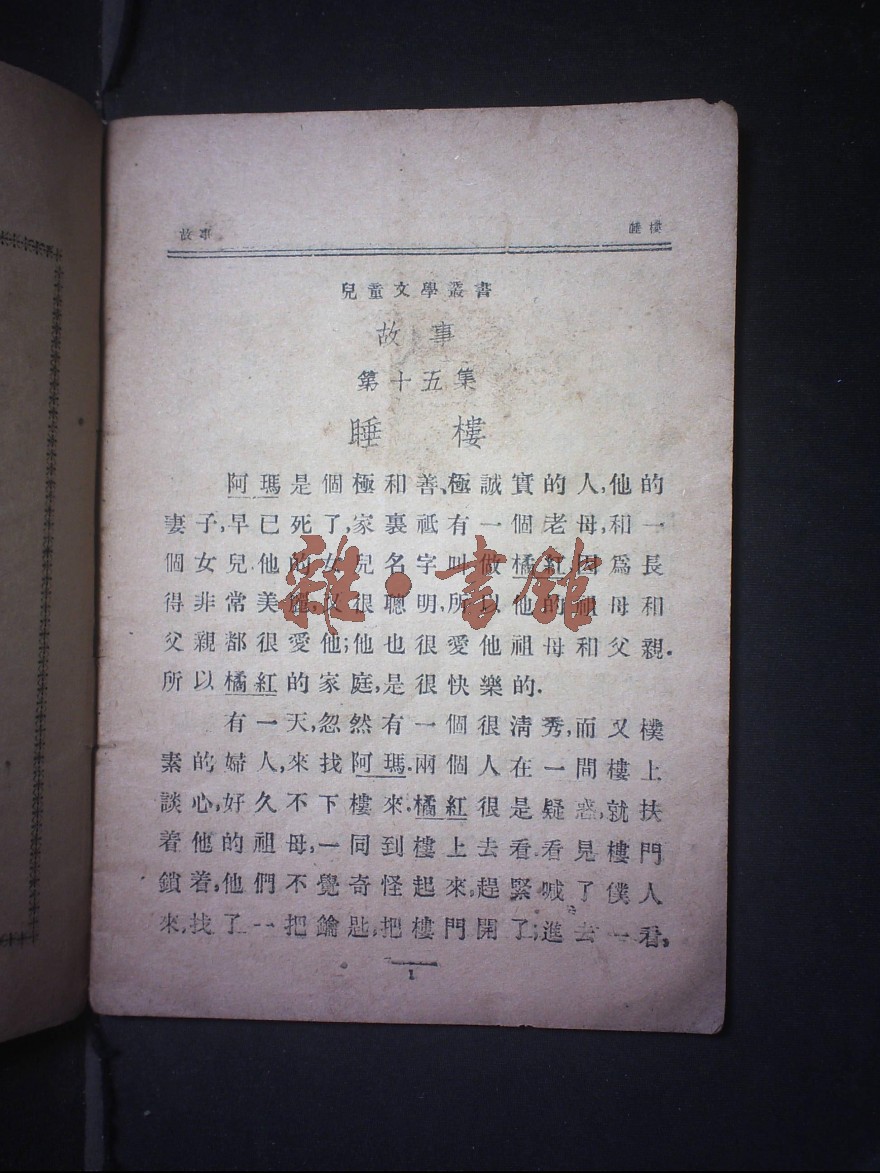 故事 睡樓
兒童文學叢書
故事
第十五集
睡樓
阿瑪是個極和善、極誠實的人,他的
妻子,早已死了,家裏祇有一個老母,和一
個女兒.他的女兒名字叫做橘紅.因爲長
得非常美麗,又很聰明,所以他的祖母和
父親都很愛他;他也很愛他祖母和父親.
所以橘紅的家庭,是很快樂的.
有一天,忽然有一個很清秀,而又樸
素的婦人,來找阿瑪.兩個人在一間樓上
談心,好久不下樓來.橘紅很是疑惑,就扶
着他的祖母,一同到樓上去看.看見樓門
鎖着,他們不覺奇怪起來,趕緊喊了僕人
來,找了一把鑰匙,把樓門開了;進去一看,
1
雜·書館